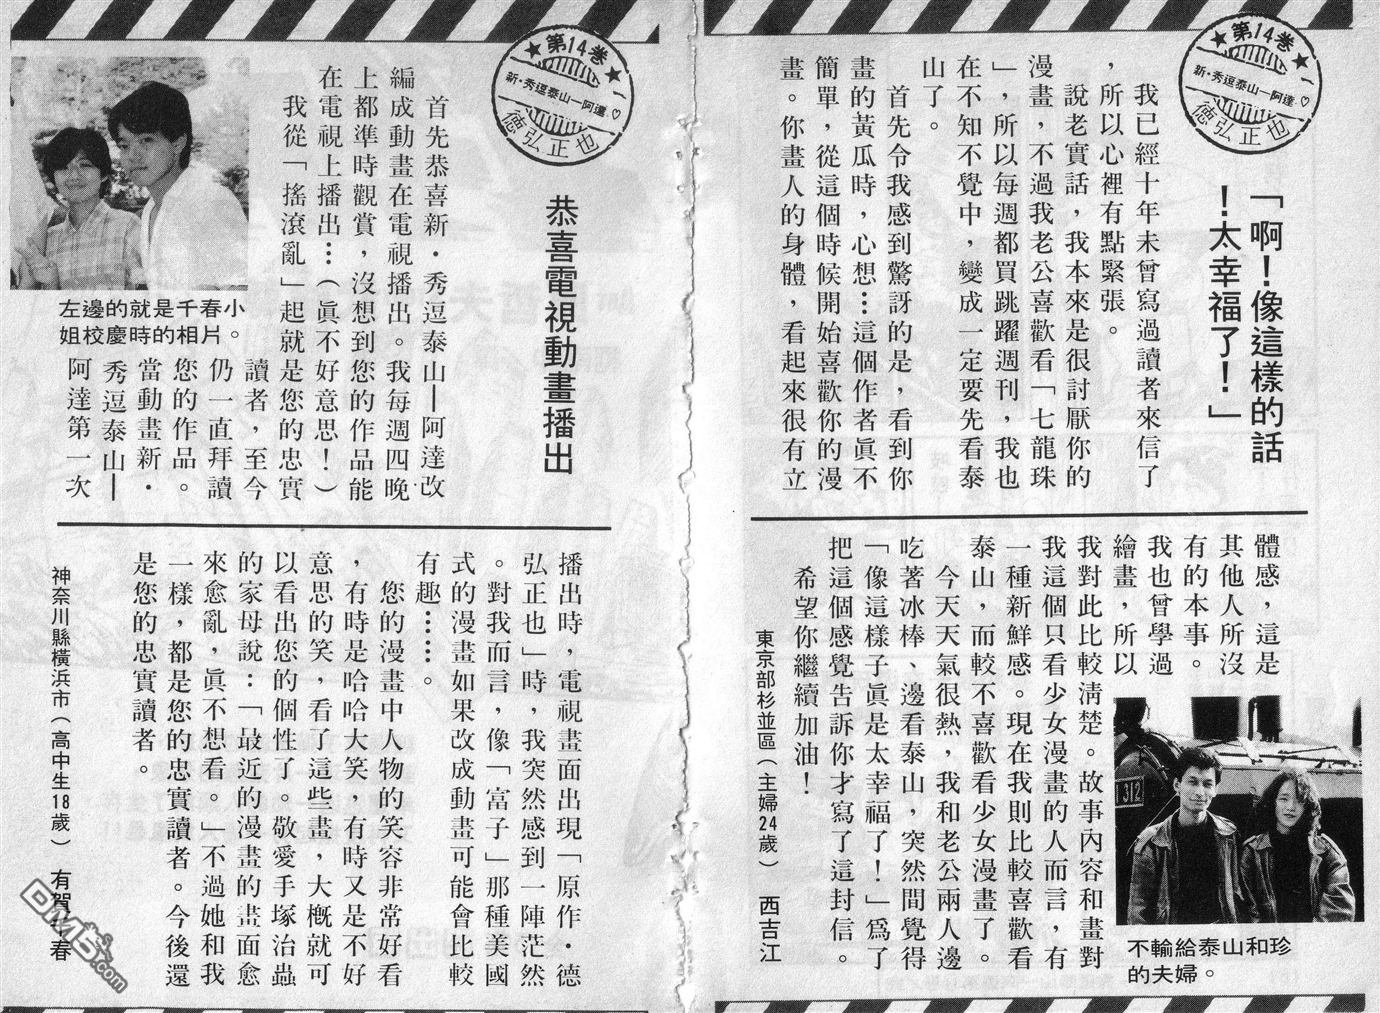 ★第14卷★
新・秀逗泰山—阿達♡
德弘正也
「啊！像這樣的話
！太幸福了！」
我已經十年未曾寫過讀者來信了
，所以心裡有點緊張。
說老實話，我本來是很討厭你的
漫畫，不過我老公喜歡看「七龍珠
」，所以每週都買跳躍週刊，我也
在不知不覺中，變成一定要先看泰
山了。
首先令我感到驚訝的是，看到你
畫的黃瓜時，心想…這個作者眞不
簡單，從這個時候開始喜歡你的漫
畫。你畫人的身體，看起來很有立
體感，這是
其他人所沒
有的本事。
我也曾學過
繪畫，所以
我對此比較清楚。故事內容和畫對
我這個只看少女漫畫的人而言，有
一種新鮮感。現在我則比較喜歡看
泰山，而較不喜歡看少女漫畫了。
今天天氣很熱，我和老公兩人邊
吃著冰棒、邊看泰山，突然間覺得
「像這樣子眞是太幸福了！」爲了
把這個感覺告訴你才寫了這封信。
希望你繼續加油！
東京部杉並區（主婦24歲） 西吉江
不輸給泰山和珍
的夫婦。
1312
★第14卷★
新・秀逗泰山—阿達♡
德弘正也
恭喜電視動畫播出
首先恭喜新・秀逗泰山—阿達改
編成動畫在電視播出。我每週四晚
上都準時觀賞，沒想到您的作品能
在電視上播出…（眞不好意思！）
我從「搖滾亂」起就是您的忠實
讀者，至今
仍一直拜讀
您的作品。
當動畫新・
秀逗泰山—
阿達第一次
播出時，電視畫面出現「原作・德
弘正也」時，我突然感到一陣茫然
。對我而言，像「富子」那種美國
式的漫畫如果改成動畫可能會比較
有趣……。
您的漫畫中人物的笑容非常好看
，有時是哈哈大笑，有時又是不好
意思的笑，看了這些畫，大概就可
以看出您的個性了。敬愛手塚治蟲
的家母說：「最近的漫畫的畫面愈
來愈亂，眞不想看。」不過她和我
一樣，都是您的忠實讀者。今後還
是您的忠實讀者。
神奈川縣橫浜市（高中生18歲） 有賀千春
左邊的就是千春小
姐校慶時的相片。
DM5.com